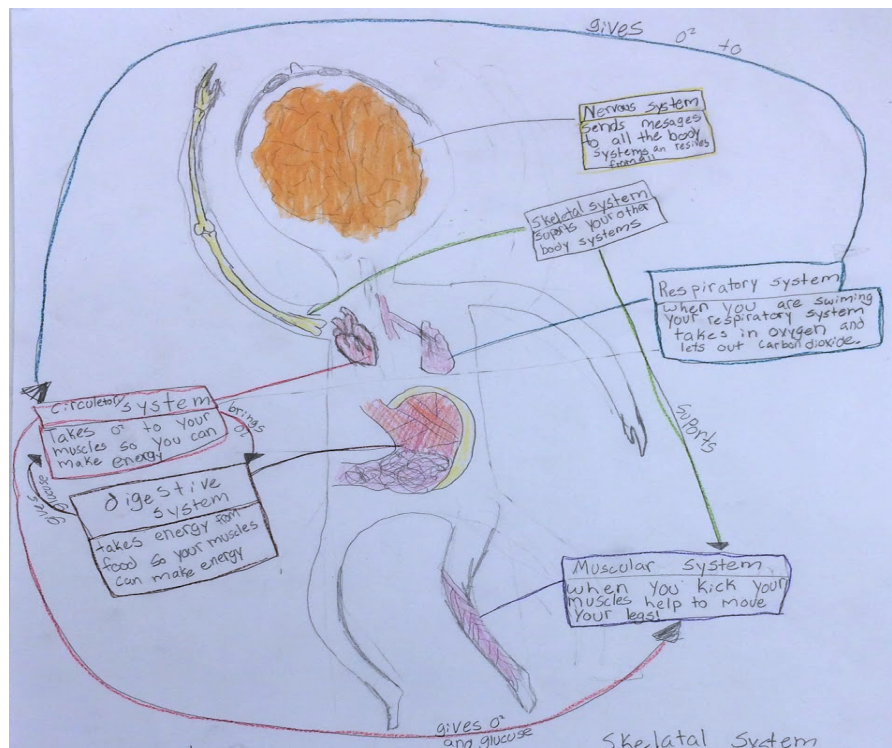 gives O² to
Nervous system
sends mesages
to all the body
systems an resives
from all
Skeletal system
suports your other
body systems
Respiratory system
when you are swiming
your respiratory system
takes in oxygen and
lets out carbon dioxide.
circuletory system
Takes O² to your
muscles so you can
make energy
brings
O²
gives
glucose
digestive
system
takes energy from
food so your muscles
can make energy
suports
Muscular system
when you kick your
muscles help to move
your legs!
gives O²
and glucuse
Skelatal System